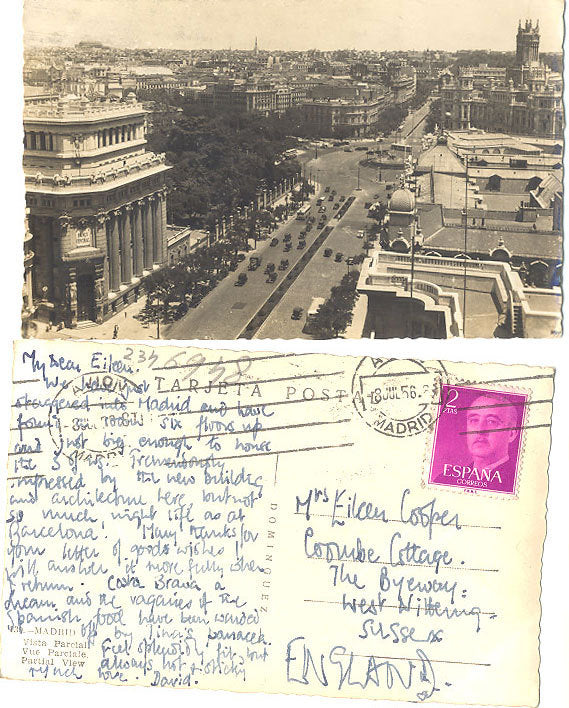 My Dear Eileen.
We have just
staggered into Madrid and have
found six floors up
and just big enough to house
the 3 of us. Tremendously
impressed by the new building
and architecture here but not
so much night life as at
Barcelona. Many thanks for
your letter of good wishes I
will answer it more fully when
I return. Costa Brava a
dream and the vagaries of the
Spanish food have been warded
off by Tina's panacea.
Feel splendidly fit, but
always hot & sticky
Much love. David.
TARJETA POSTAL
18 JUL 56
MADRID
2
PTAS
ESPAÑA
CORREOS
DOMINGUEZ
Mrs Eileen Cooper
Coombe Cottage.
The Byeway.
West Wittering.
Sussex
ENGLAND.
MADRID
Vista Parcial
Vue Parciale
Partial View